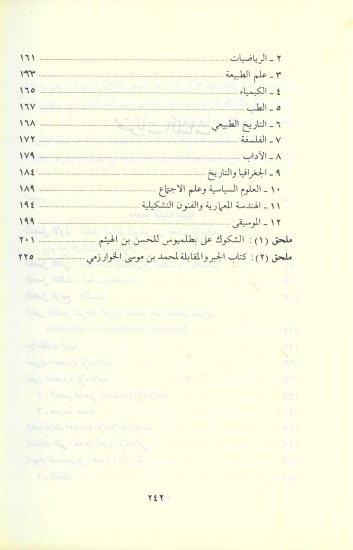 ٢ ـ الرياضيات ........ ١٦١
٣ ـ علم الطبيعة ........ ١٦٣
٤ ـ الكيمياء ........ ١٦٥
٥ ـ الطب ........ ١٦٧
٦ ـ التاريخ الطبيعي ........ ١٦٨
٧ ـ الفلسفة ........ ١٧٢
٨ ـ الآداب ........ ١٧٩
٩ ـ الجغرافيا والتاريخ ........ ١٨٤
١٠ ـ العلوم السياسية وعلم الاجتماع ........ ١٨٩
١١ ـ الهندسة المعمارية والفنون التشكيلية ........ ١٩٤
١٢ ـ الموسيقى ........ ١٩٩
ملحق (١): الشكوك على بطلميوس للحسن بن الهيثم ........ ٢٠١
ملحق (٢): كتاب الجبر والمقابلة لمحمد بن موسى الخوارزمي ........ ٢٢٥
٢٤٢